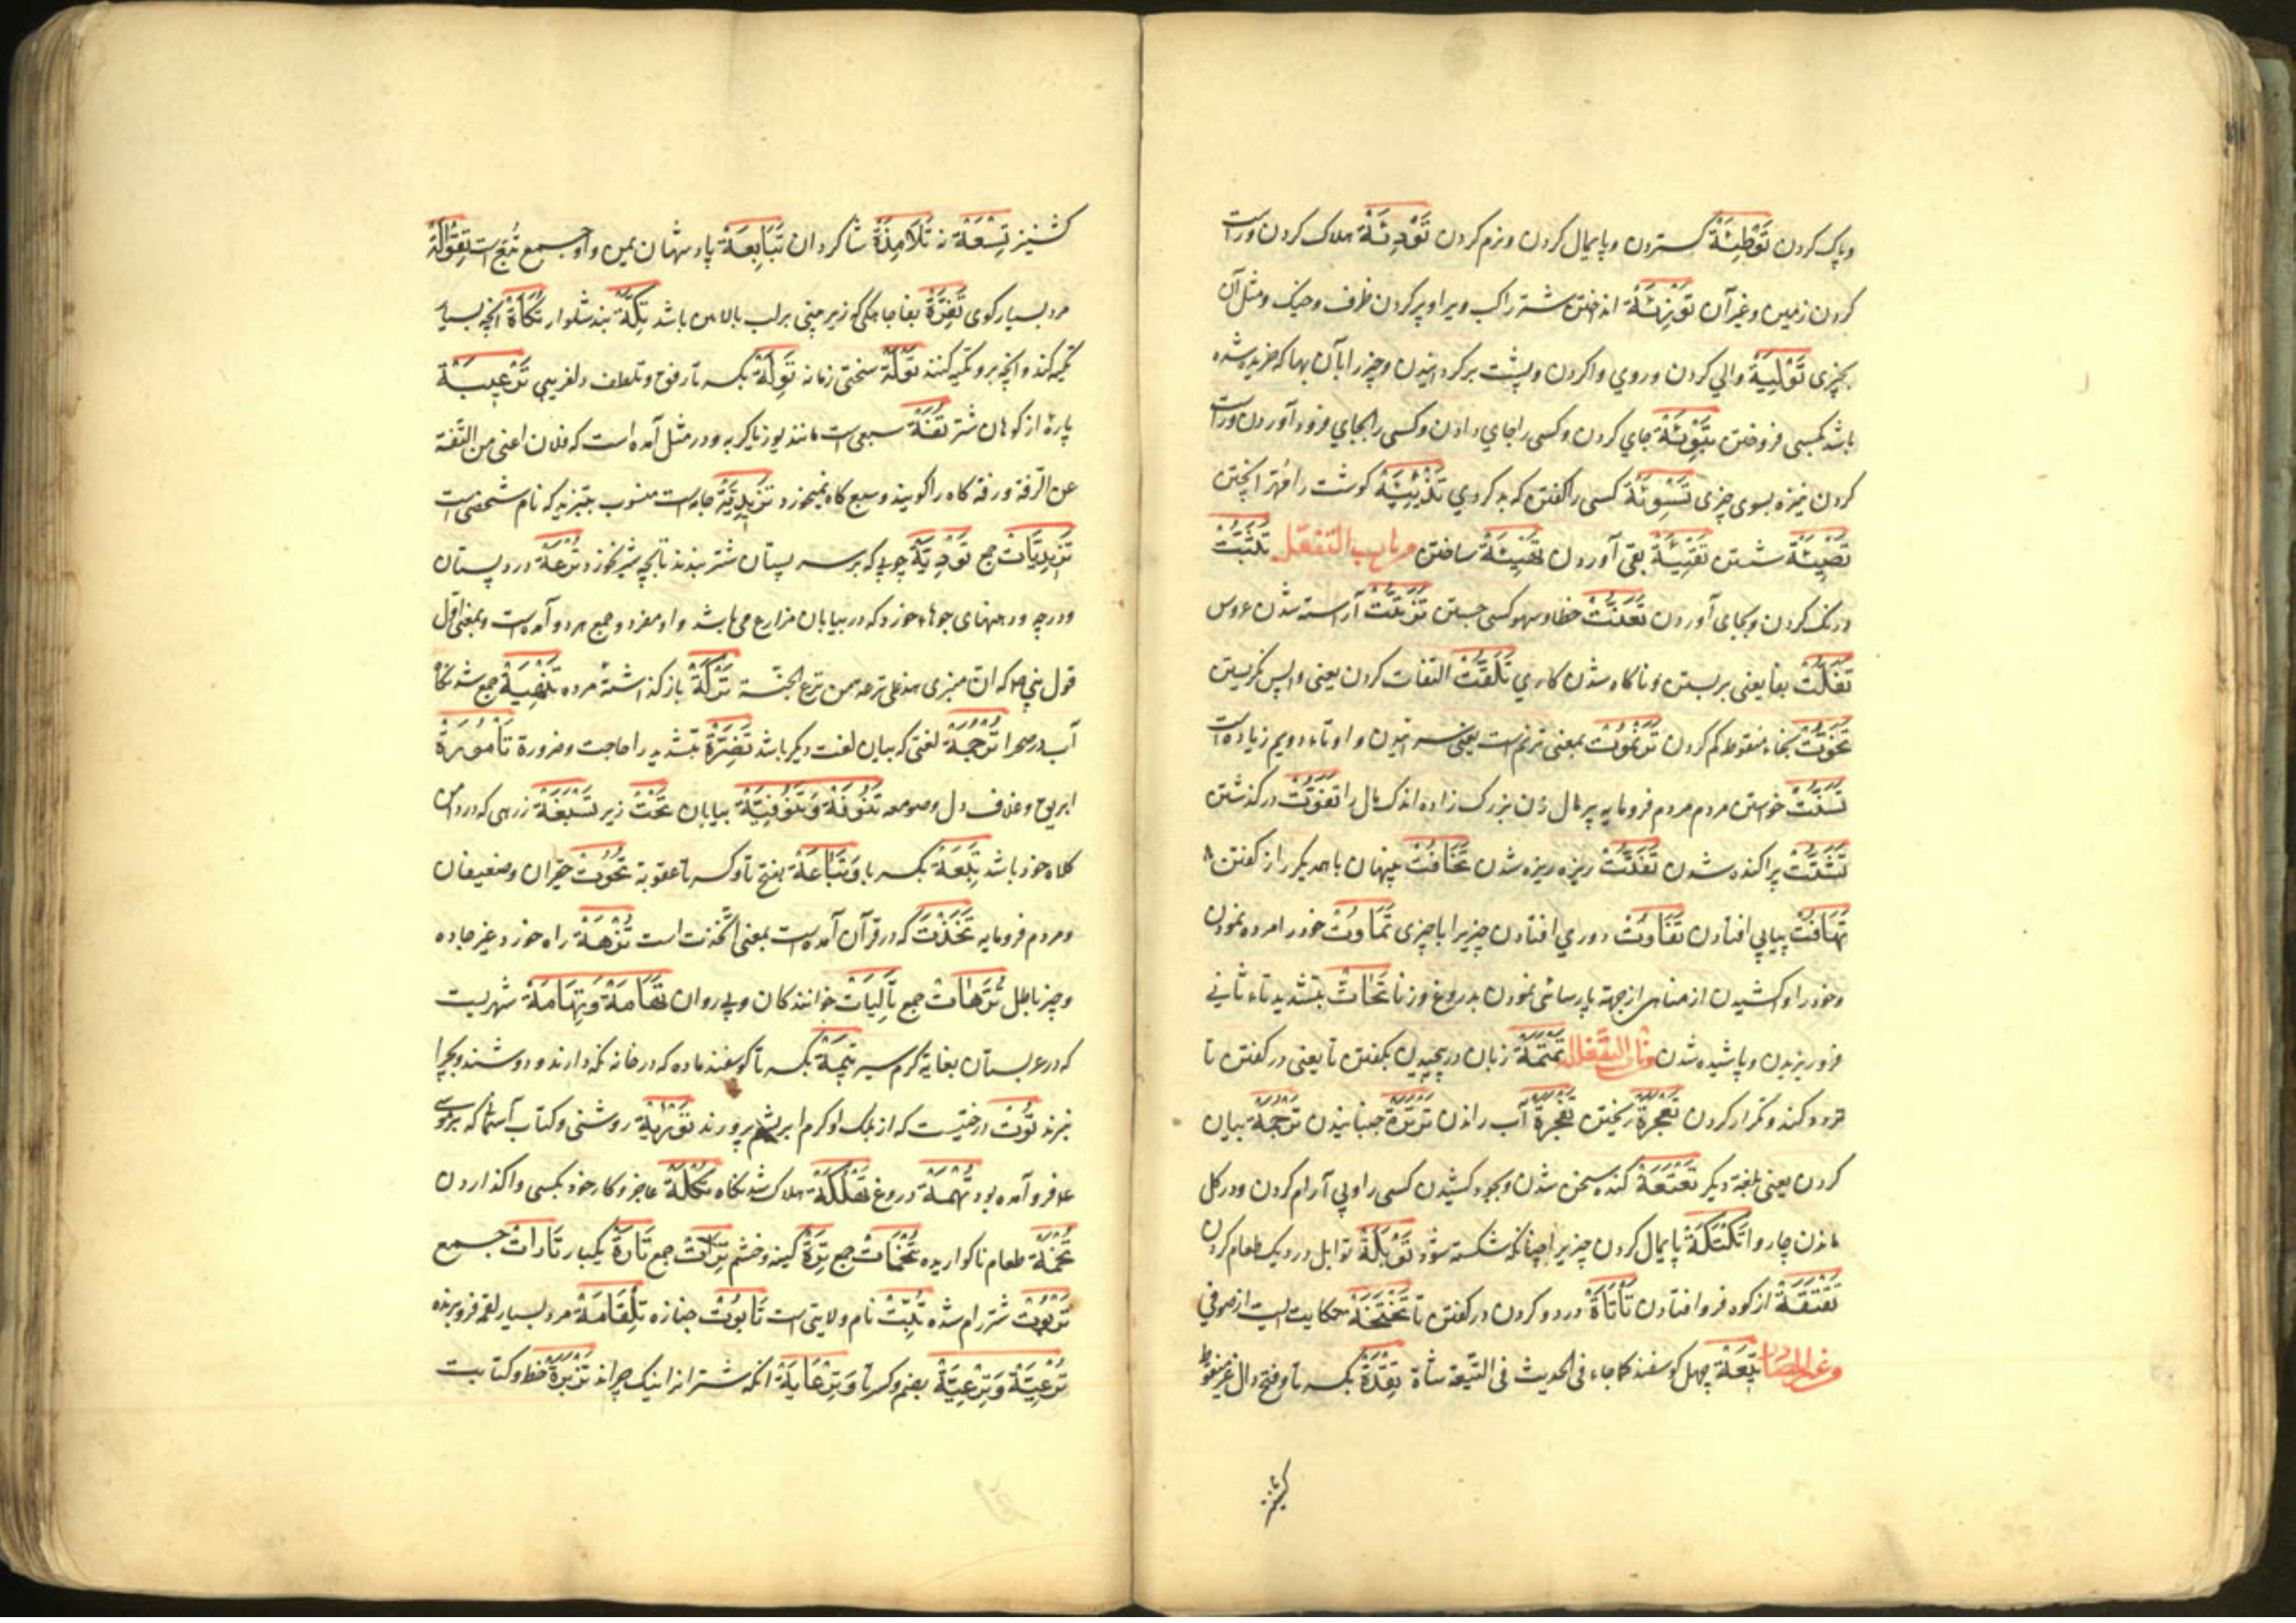 و پاک کردن تَوْطِئَةْ گستردن و پایمال کردن و نرم کردن تَوْدِئَةْ هلاک کردن و راست
کردن زمین و غیر آن تَوْزِئَةْ انداختن شتر راکب و یرا و پر کردن ظرف و خیک و مثل آن
بچیزی تَوْلِيَةْ والی کردن و روی واکردن و پشت برگردانیدن و چیز را بآن بها که خریده شده
باشد بکسی فروختن تَبْوِئَةْ جای کردن و کسی را جای دادن و کسی را بجای فرود آوردن و راست
کردن نیزه بسوی چیزی تَسْوِئَةْ کسی را گفتن که بد کردی گوشت را
شستن تَقْيِئَةْ بقی آوردن ساختن من باب التفعّل تَلَبُّثْ
درنگ کردن و بجای آوردن تَعَنُّتْ خطا و سهو کسی جستن تَزَتُّتْ آراسته شدن عروس
تَفَلُّتْ بفا یعنی بر بستن و ناگاه شدن کاری تَلَفُّتْ التفات کردن یعنی واپس نگریستن
تَخَوُّتْ بخاء منقوط کم کردن تَرَنْمُوتْ بمعنی ترنم است یعنی سرائیدن و او تاء دویم زیاده است
تَسَنُّتْ خواستن مردم فرومایه پر مال زن بزرگ زاده اندک مال را تَفَوُّتْ در گذشتن
تَشَتُّتْ پراکنده شدن تَفَتُّتْ ریزه ریزه شدن تَخَافُتْ پنهان با همدیگر راز گفتن
تَهَافُتْ پیاپی افتادن تَفَاوُتْ دوری افتادن چیزیرا با چیزی تَمَاوُتْ خود را مرده نمودن
و خود را واکشیدن از مناهی از جهة پارسائی نمودن بدروغ و زنا تَحَاتّْ بتشدید تاء ثانی
فرو ریزیدن و پاشیده شدن من باب الفعللة تَمْتَمَةْ زبان در پیچیدن بگفتن تا یعنی در گفتن تا
تردد کند و تکرار کردن ریختن آب راندن تَرْتَرَةْ جنبانیدن تَرْجَمَةْ بیان
کردن یعنی بلغة دیگر تَعْتَعَةْ کنده سخن شدن و بجور کشیدن کسی را و بی آرام کردن و در گل
ماندن چاروا تَكْتَكَةْ پایمال کردن چیزیرا چنانکه شکسته شود تَوْبَلَةْ توابل در دیگ طعام کردن
تَقْتَقَةْ از کوه فرو افتادن تَأْتَأَةْ تردد کردن در گفتن تا تَخْتَخَةْ حکایت است از صوفی
و غیر المصادر تِيعَةْ چهل گوسفند کما جاء فی الحدیث فی التیعة شاة تِقْدَةْ بکسر تا و فتح دال غیر منقوط
کشنیز
کشنیز تِسْعَةْ نه تَلَامِذَةْ شاگردان تَبَابِعَةْ پادشهان یمن و او جمع تُبَّع است تِقْوَالَةْ
مرد بسیار گوی تَفِرَةْ بفا جایگه که زیر بینی بر لب بالایین باشد تِكَّةْ بند شلوار تُكَأَةْ آنچه بسیار
تکیه کند و آنچه برو تکیه کنند تَوْلَةْ سختی زمانه تِوَلَةْ بکسر تا رفق و تلطف و لفریبی تَرْعِيبَةْ
پارۀ از کوهان شتر تُفَةْ سبعی است مانند یوز یا گربه و در مثل آمده است که فلان اغنی من التفة
عن الرفة و رفة کاه را گویند و سبع کاه نمیخورد تَزِيدِيَّةْ جامه است منسوب بتزید که نام شخصی است
تَزِيدِيَّاتْ جمع تَوْدِيَةْ چوبی که بر سر پستان شتر بندند تا بچه شیر نخورد تُرْعَةْ در و پستان
و درجه و دهنهای جوهاء خورد که در بیابان مزارع می باشد و او مفرد و جمع هر دو آمده است و بمعنی اول
قول نبی صلعم که ان منبری هذه علی ترعة من ترع الجنة تَرِكَةْ باز گذاشتۀ مرده تَنْهِيَةْ جمع شدنگاه
آب در صحرا تَرْجَمَةْ لغتی که بیان لغت دیگر باشد تَضِرَّةْ بتشدید را حاجت و ضرورة تَامُورَةْ
ابریق و غلاف دل و صومعه تَنُوفَةْ وَتَنُوفِيَّةْ بیابان تَحْتْ زیر تَسْبِغَةْ زرهی که در دامن
کلاه خود باشد تَبِعَةْ بکسر با وَتِبَاعَةْ بفتح تا و کسر تا عقوبة تُحُوتْ حقیران و ضعیفان
و مردم فرومایه تَخَذْتَ که در قرآن آمده است بمعنی اتخذت است تُرَّهَةْ راه خورد غیر جاده
و چیز باطل تُرَّهَاتْ جمع تَالِيَاتْ خوانندگان و پی روان تَهَامَةْ وَتِهَامَةْ شهریست
که در عربستان بغایة گرم سیر تِيمَةْ بکسر تا گوسفند ماده که در خانه نگه دارند و دوشند و بچرا
نبرند تُوتْ درختیست که از برگ او کرم ابریشم پرورند تَوْرَيٰةْ روشنی و کتاب آسمانی که بر موسی
ع فرو آمده بود تُهْمَةْ دروغ تَهْلُكَةْ هلاک شدنگاه تُكَلَةْ عاجز و کار خود بکسی واگذاردن
تُخَمَةْ طعام ناگواریده تُخَمَاتْ جمع تِرَةْ کینه و خشم تِرَاتْ جمع تَارَةْ یکبار تَارَاتْ جمع
تَرَبُوتْ شتر رام شده تِبَّتْ نام ولایتی است تَابُوتْ جنازه تِلْقَامَةْ مرد بسیار لقمه فرو برنده
تَرْعِيَّةْ وَتِرْعِيَّةْ بضم و کسر تا وَتِرْعَايَةْ آنکه شتران را نیک چراند تَزْبِرَةْ خط و کتابت